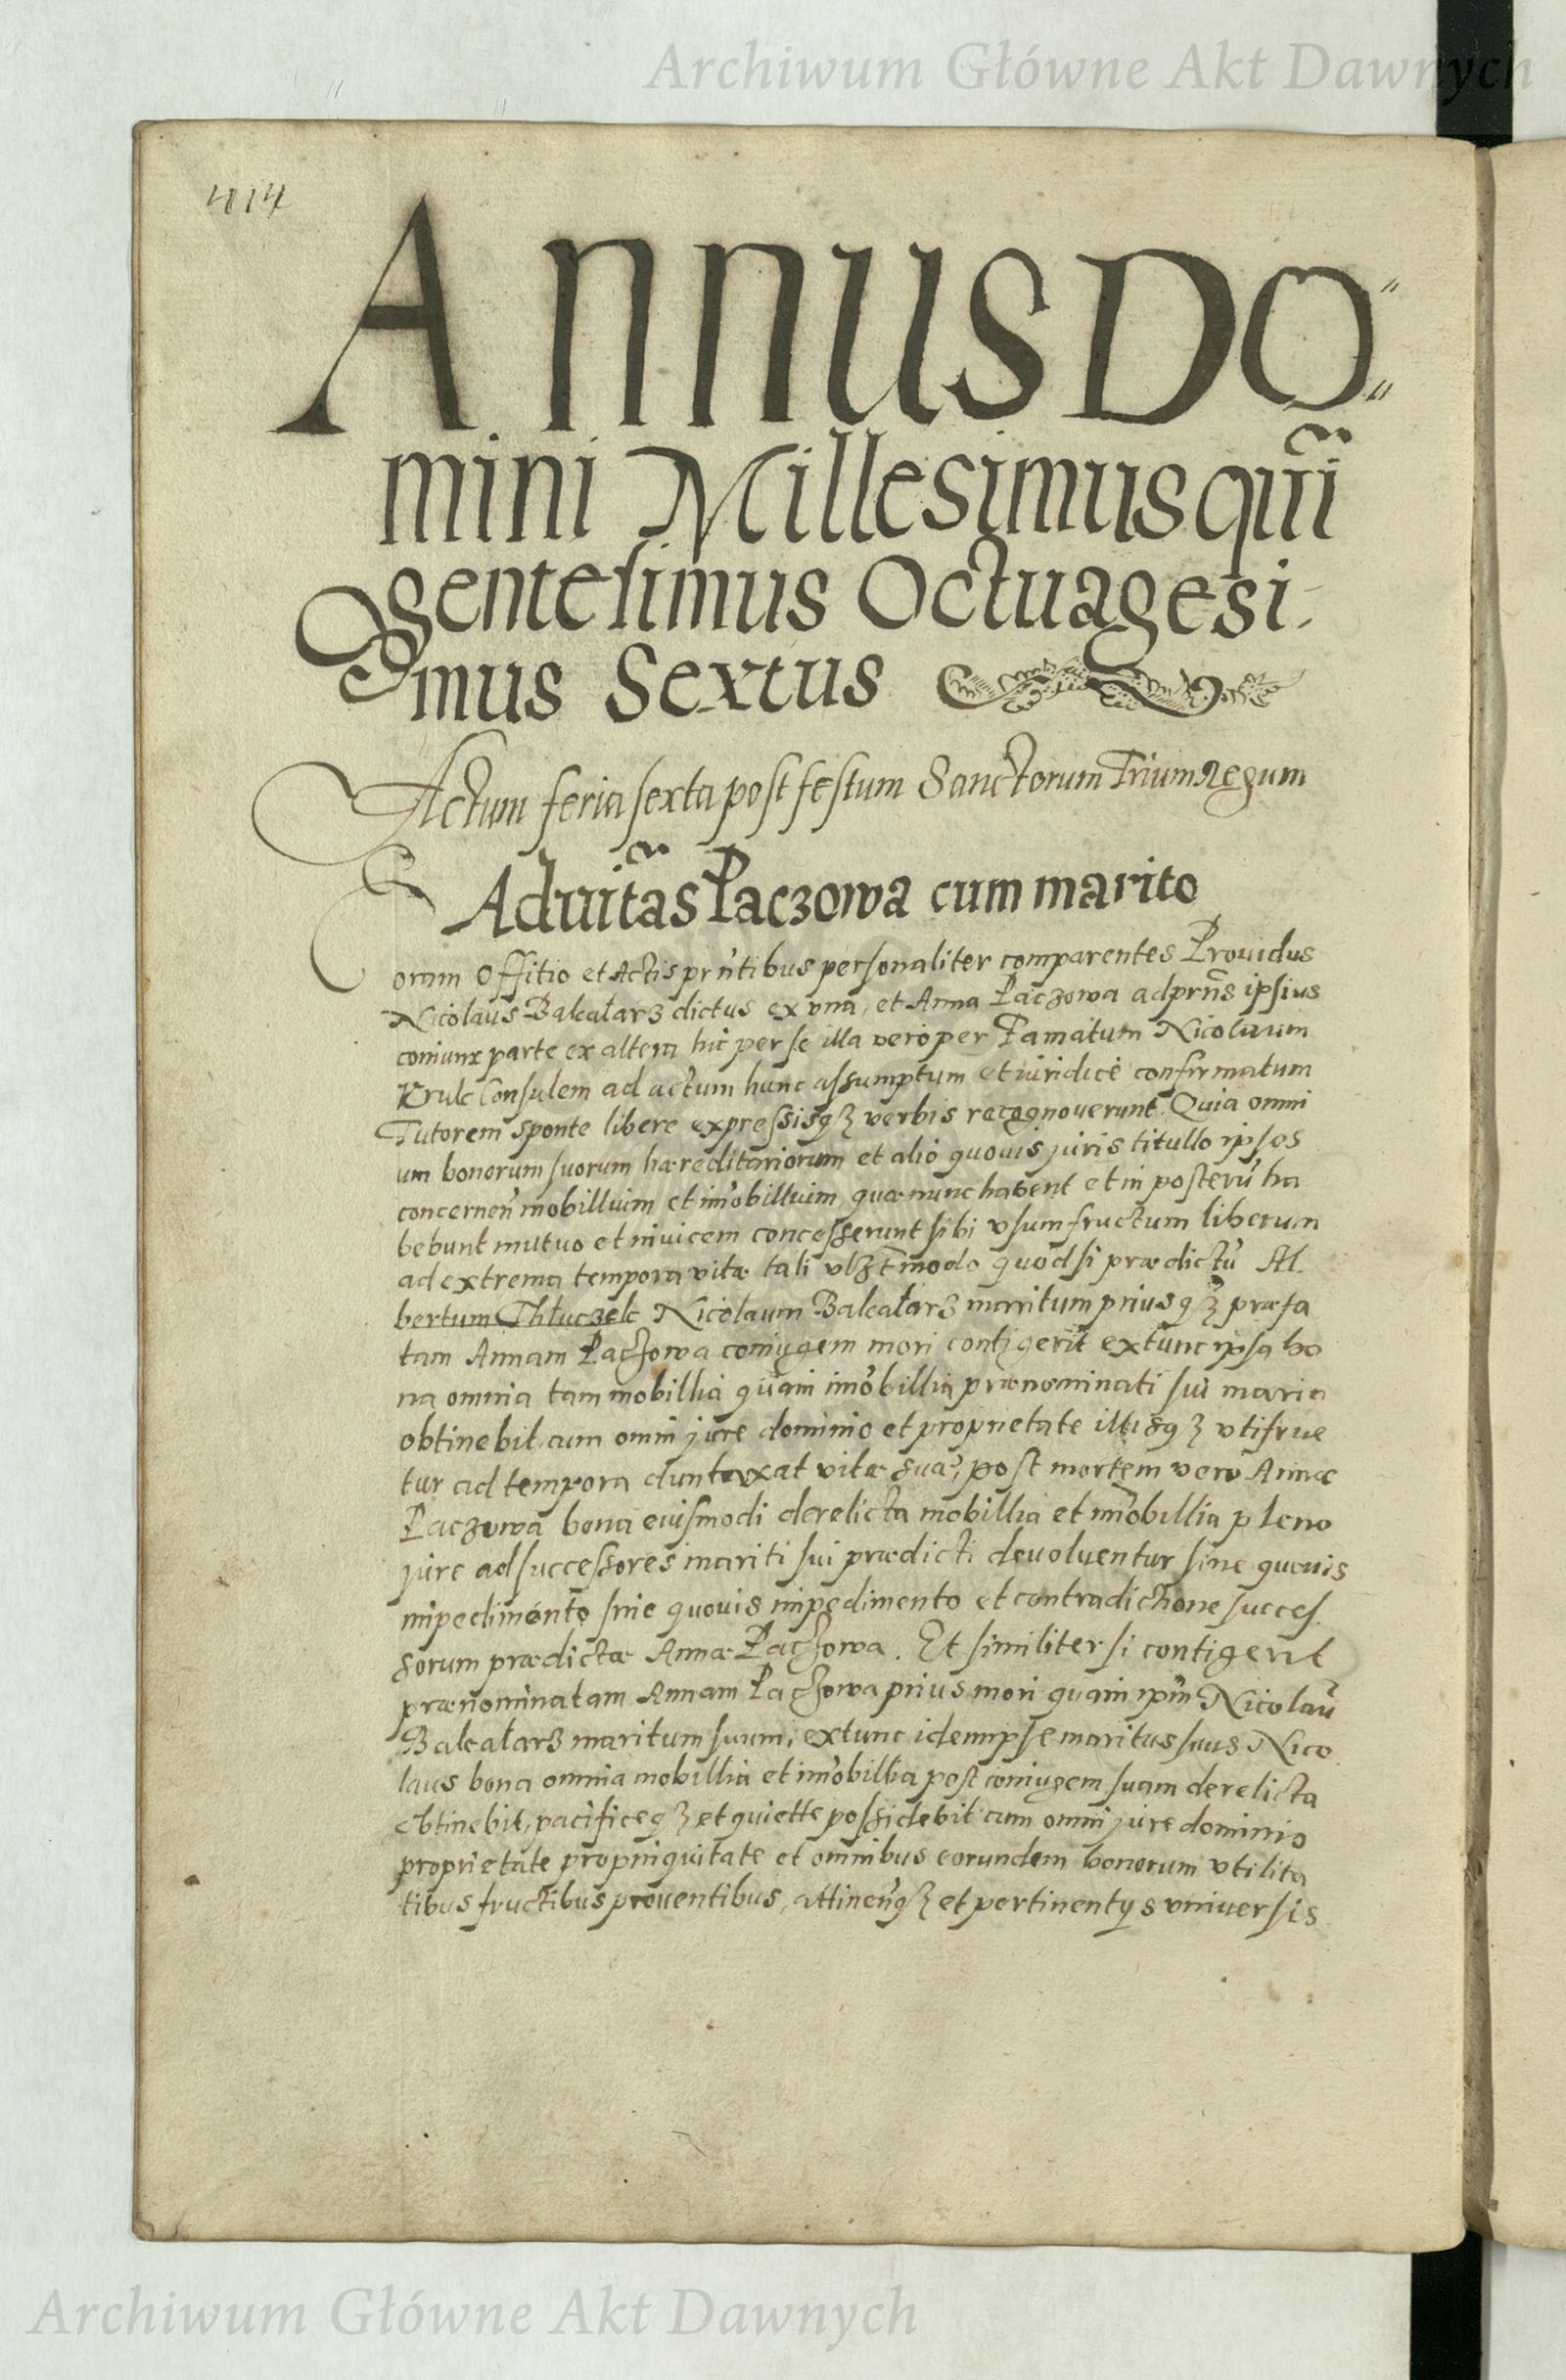 Archiwum Główne Akt Dawnych
414
Annus Do„
mini Millesimus qui͂
gentesimus Octuagesi-
mus Sextus
Actum feria sexta post festum Sanctorum Trium Regum
Aduit͂as Paczowa cum marito
Coram Offitio et Actis prn͂tibus personaliter comparentes Prouidus
Nicolaus Bakałarz dictus ex vna, et Anna Paczowa ad prn͂s ipsius
coniunx parte ex altera hic per se illa vero per Famatum Nicolaum
Krulc Consulem ad actum hunc assumptum et iuridicè confirmatum
Tutorem sponte libere expressisqȝ verbis recognouerunt. Quia omni
um bonorum suorum hæreditariorum et alio quouis juris titullo ipsos
concernen͂ mobillium et im͂obillium quæ nunc habent et in posterū ha
bebunt mutuo et inuicem concesserunt sibi vsumfructum liberum
ad extrema tempora vitæ tali vlȝt͂ modo quod si prædictū Al.
bertum Thłuczek Nicolaum Bakałarz maritum prius qȝ præfa
tam Annam Paczowa coniugem mori contigerit extunc ipsa bo
na omnia tam mobillia quam im͂obillia prænominati sui maria
obtinebit cum omni jure dominio et proprietate illisqȝ vtifrue
tur ad tempora duntaxat vitæ suæ, post mortem vero Annæ
Paczowa bona eiusmodi derelicta mobillia et im͂obillia pleno
jure ad successores mariti sui prædicti deuoluentur sine quouis
impedimento sine quouis impedimento et contradictione succes
sorum prædictæ Annæ Paczowa. Et similiter si contigerit
prænominatam Annam Paczowa prius mori quam ipm͂ Nicolaū
Bakałarz maritum suum, extunc idem ipse maritus suus Nico
laus bona omnia mobillia et im͂obillia post coniugem suam derelicta
obtinebit, pacificeqȝ et quiette possidebit cum omni jure dominio
proprietate propinquitate et omnibus eorundem bonorum vtilita
tibus fructibus prouentibus, attinen͂qȝ et pertinentijs vniuersis
Archiwum Główne Akt Dawnych